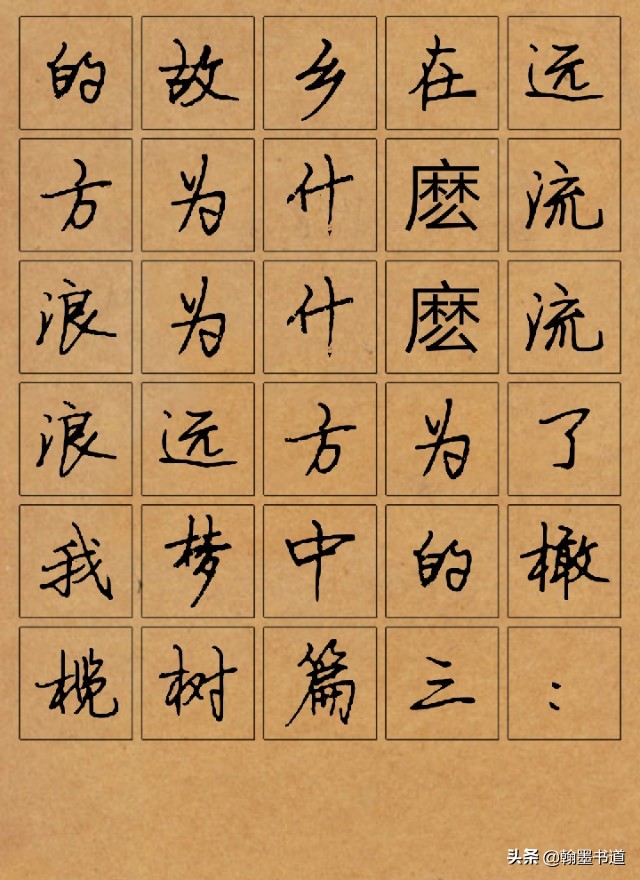 的故乡在远
方为什麽流
浪为什麽流
浪远方为了
我梦中的橄
榄树篇三：
头条 @翰墨书道